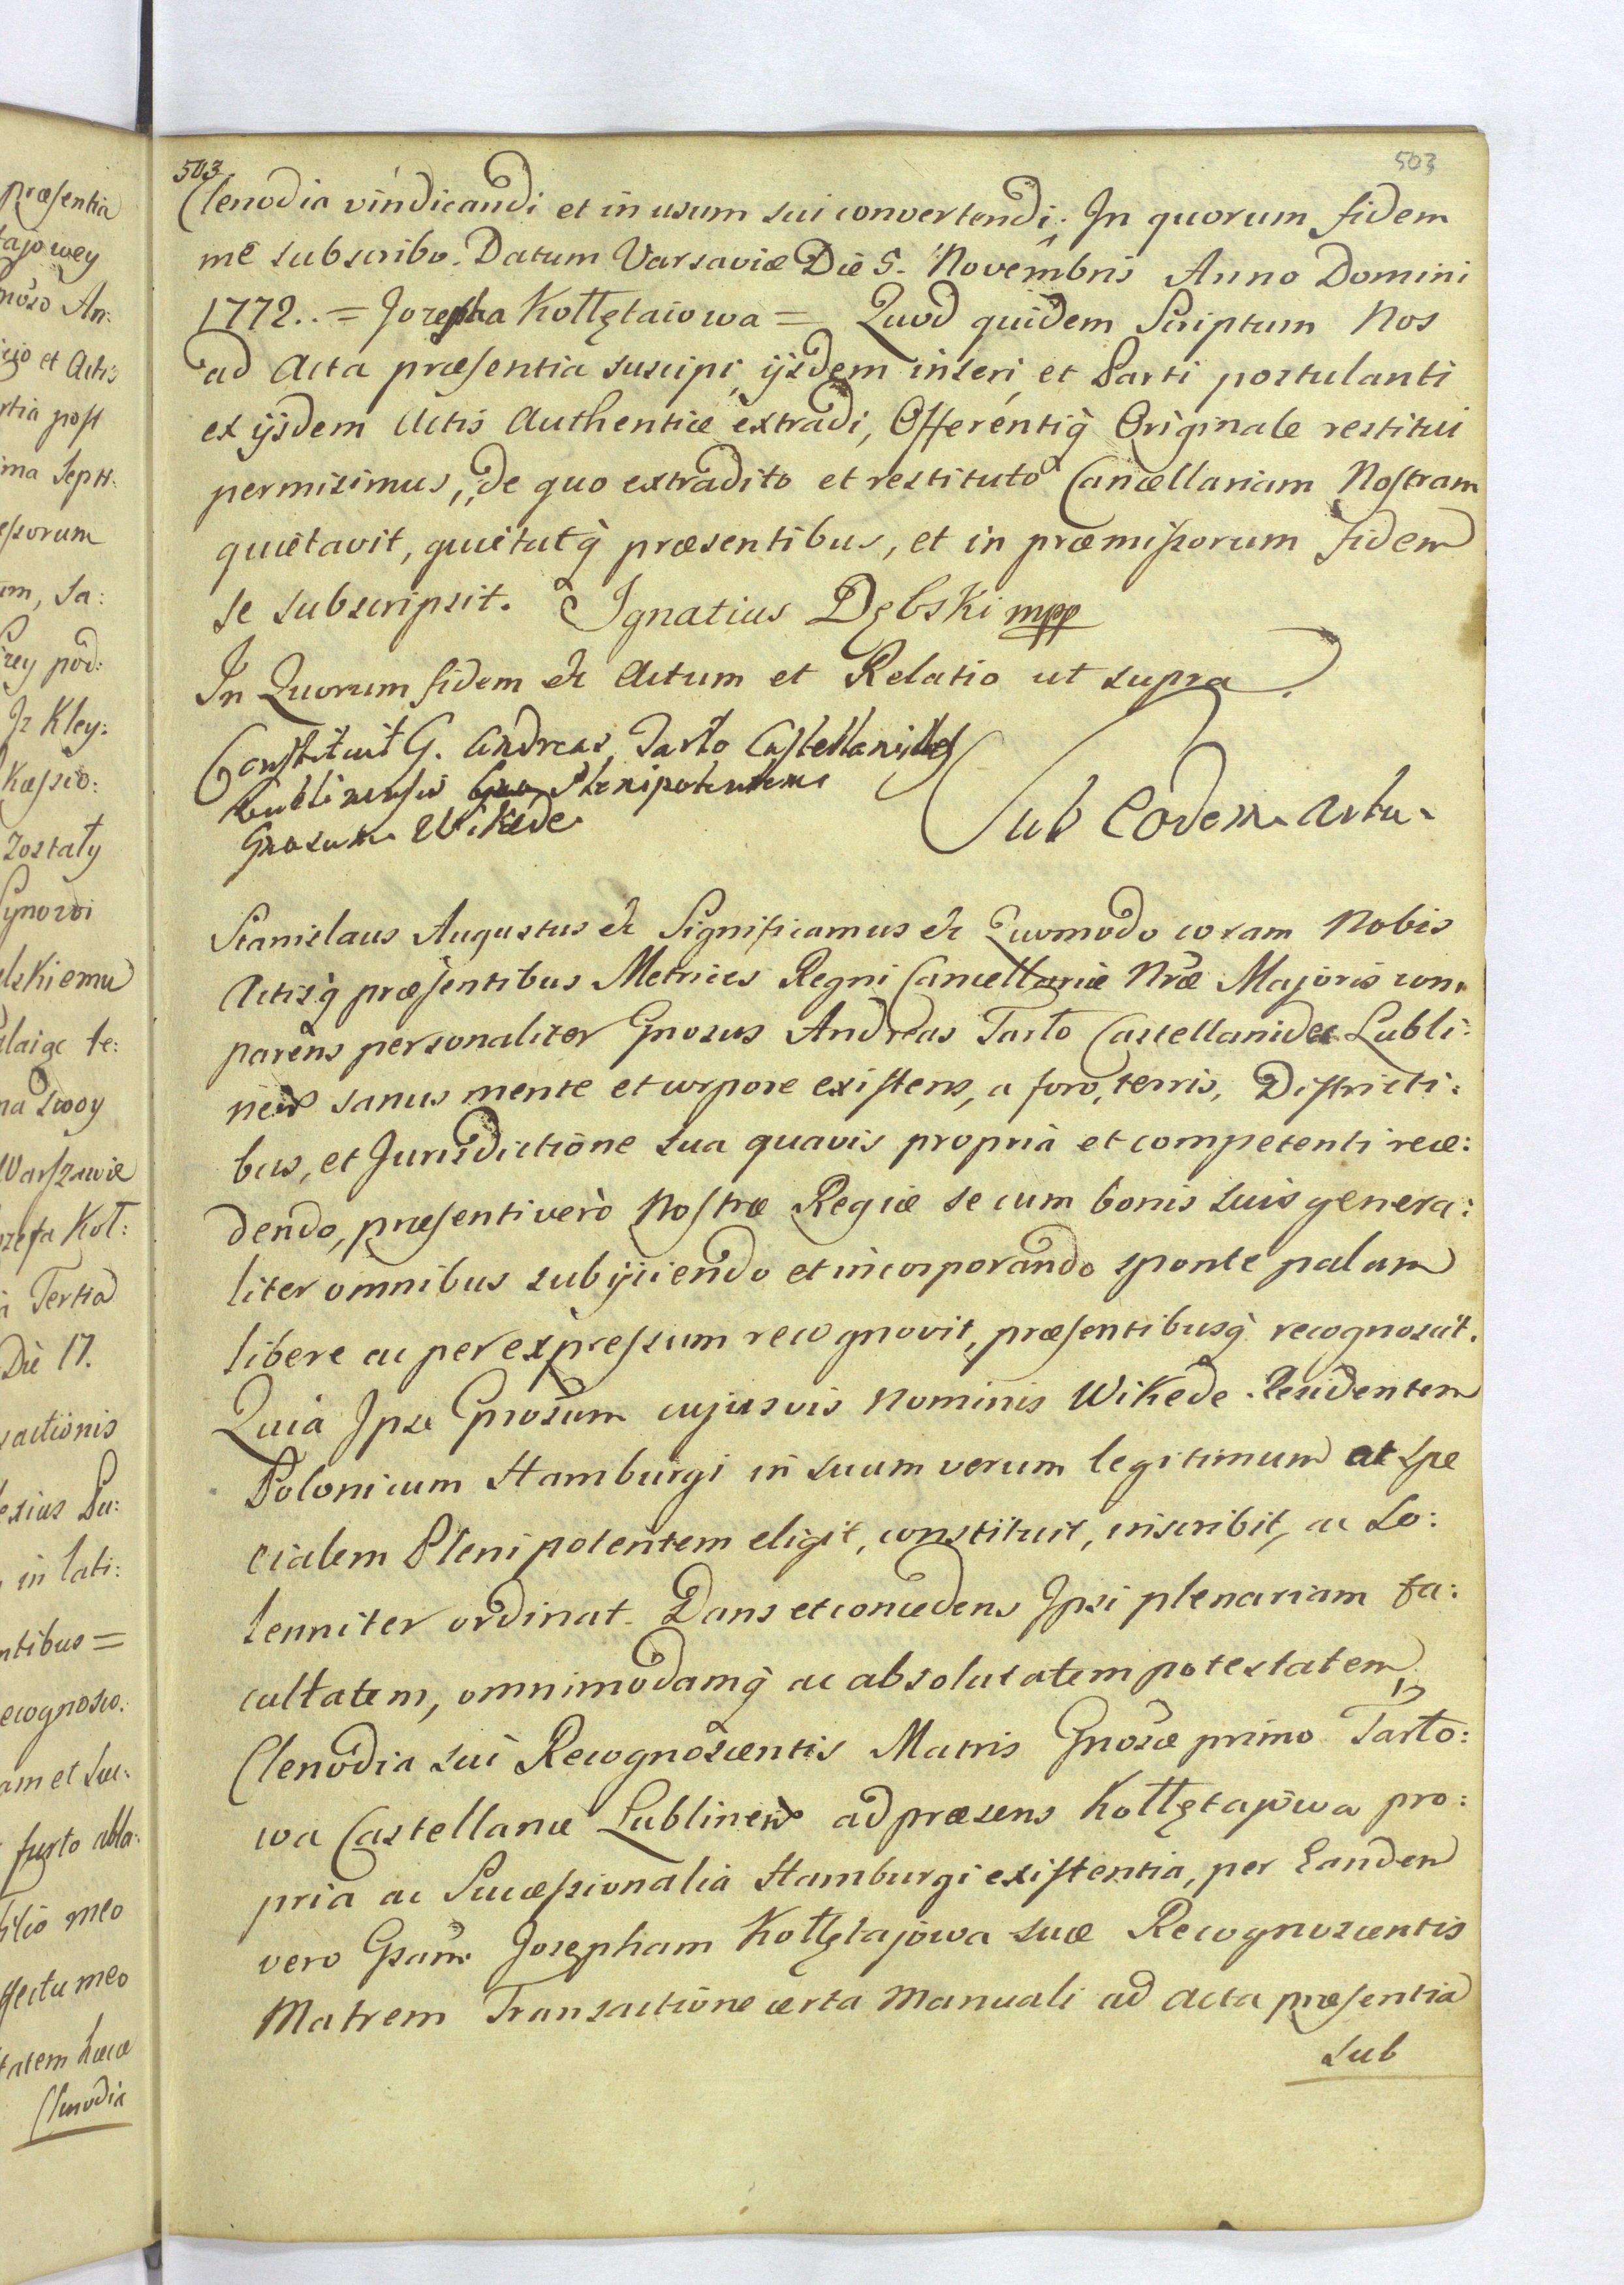 503 503
Clenodia vindicandi et in usum sui convertendi. In quorum fidem
me subscribo. Datum Varsaviæ Die 5. Novembris Anno Domini
1772.. = Jozepha Kołłętaiowa = Quod quidem Scriptum Nos
ad Acta præsentia suscipi, ijsdem inseri et Parti postulanti
ex ijsdem Actis Authenticè extradi, Offerentiq̀ Originale restitui
permisimus, de quo extradito et restituto Cancellariam Nostram
quietavit, quietatq̀ præsentibus, et in præmissorum fidem
se subscripsit. Ignatius Dębski mpp
In Quorum fidem &c Actum et Relatio ut supra.
Constituit G. Andreas Tarło Castellanides
Lublinensis Plenipotentem
Gnosum Wikede
Sub Eodem Actu
Stanislaus Augustus &c Significamus &c Quomodo coram Nobis
Actisq̀ præsentibus Metrices Regni Cancellariæ Nræ Majoris com:
parens personaliter Gnosus Andreas Tarło Castellanides Lubli:
neñ sanus mente et corpore existens, a foro, terris, Districti:
bus, et Jurisdictione sua quavis propria et competenti rece:
dendo, præsenti verò Nostræ Regiæ se cum bonis suis genera:
liter omnibus subijciendo et incorporando sponte palam
libere ac per expressum recognovit, præsentibusq̀ recognoscit.
Quia Ipse Gnosum cujusvis Nominis Wikede Residentem
Polonicum Hamburgi in suum verum legitimum at Spe
cialem Plenipotentem eligit, constituit, inscribit, ac So:
lenniter ordinat. Dans et concedens Ipsi plenariam fa:
cultatem, omnimodamq̀ ac absolutatem potestatem
Clenodia sui Recognoscentis Matris Gnosæ primo Tarło:
wa Castellanæ Lublineñ ad præsens Kołłętajowa pro:
pria ac Successionalia Hamburgi existentia, per Eandem
vero Gsam Josepham Kołłętajowa suæ Recognoscentis
Matrem Transactione certa Manuali ad Acta præsentia
sub